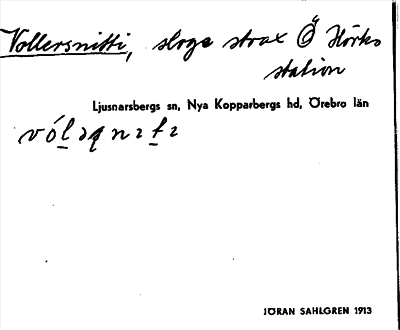 Vollersnitti, sloge strax Ö Hörks
station
Ljusnarsbergs sn, Nya Kopparbergs hd, Örebro län
JÖRAN SAHLGREN 1913